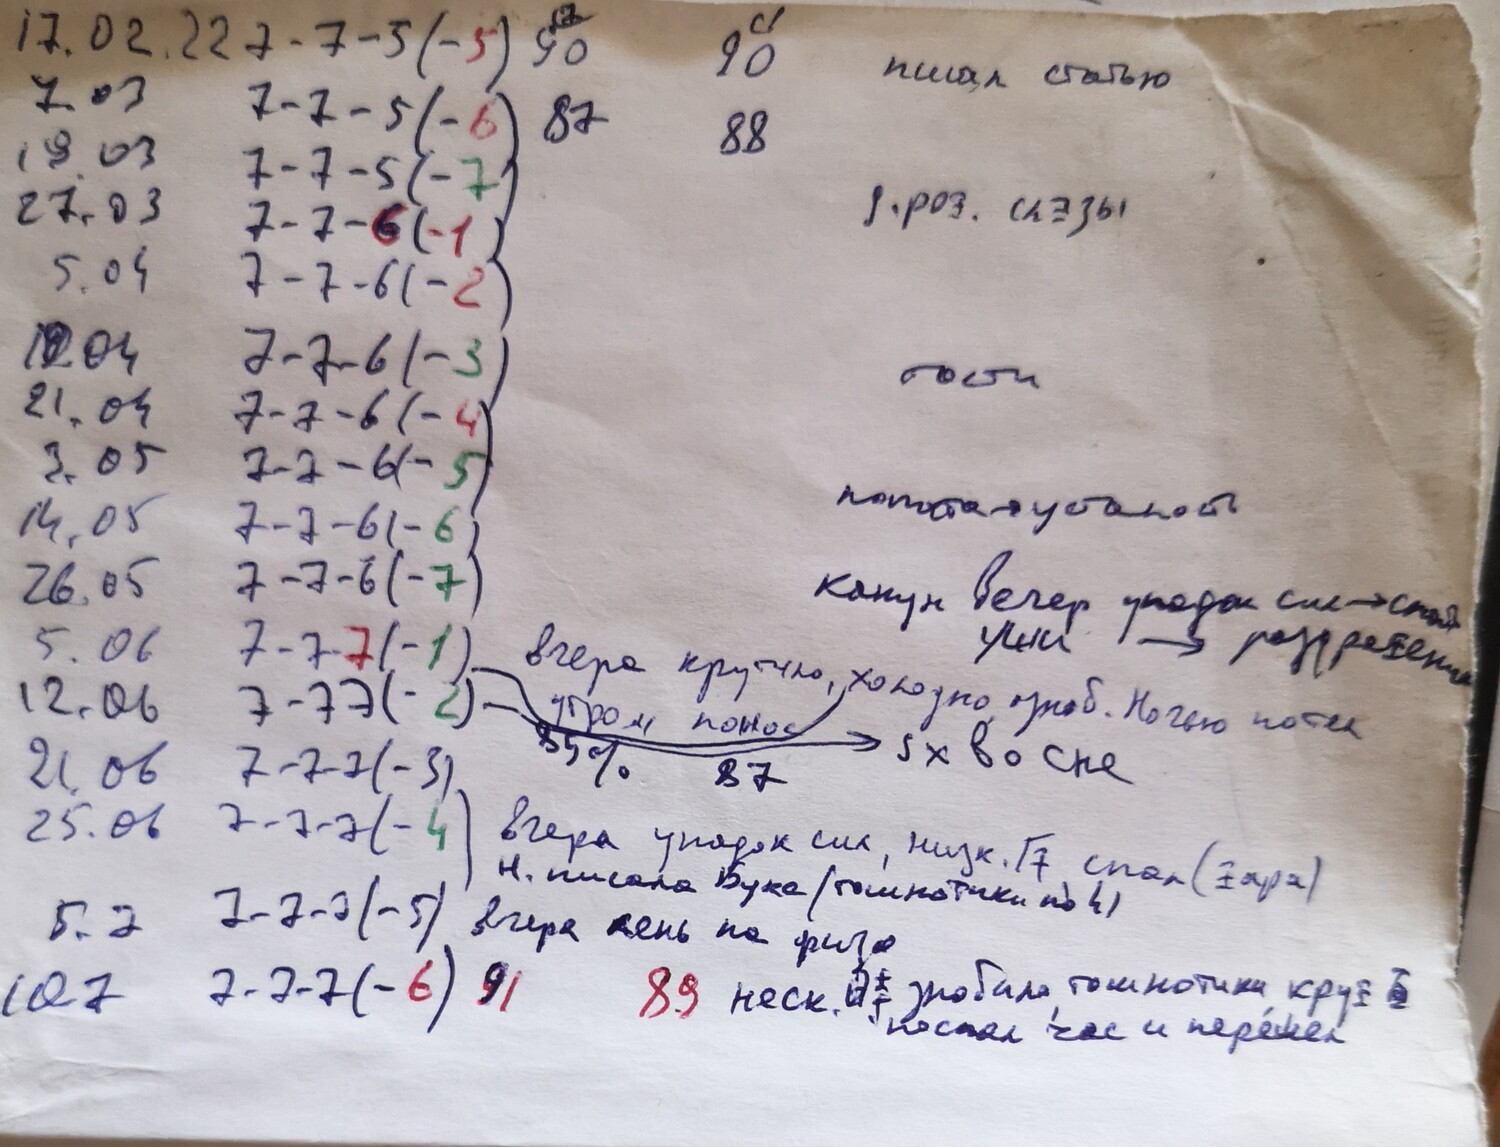 17.02.22 7-7-5(-5) 90 90 писал статью
7.03 7-7-5(-6) 87 88
19.03 7-7-5(-7)
27.03 7-7-6(-1) слезы
5.04 7-7-6(-2)
04 7-7-6(-3) гости
21.04 7-7-6(-4)
3.05 7-7-6(-5)
14.05 7-7-6(-6)
26.05 7-7-6(-7) канун вечер упадок сил →
→
5.06 7-7-7(-1) вчера крутило, холодно, озноб. Ночью потел
12.06 7-77(-2) утром понос
85% 87 → 5х во сне
21.06 7-7-7(-3)
25.06 7-7-7(-4) вчера упадок сил, низк. спал (жара)
Н. писала
5.7 7-7-7(-5) вчера день на
10.7 7-7-7(-6) 91 89 неск. знобило, тошнотики,
поспал час и